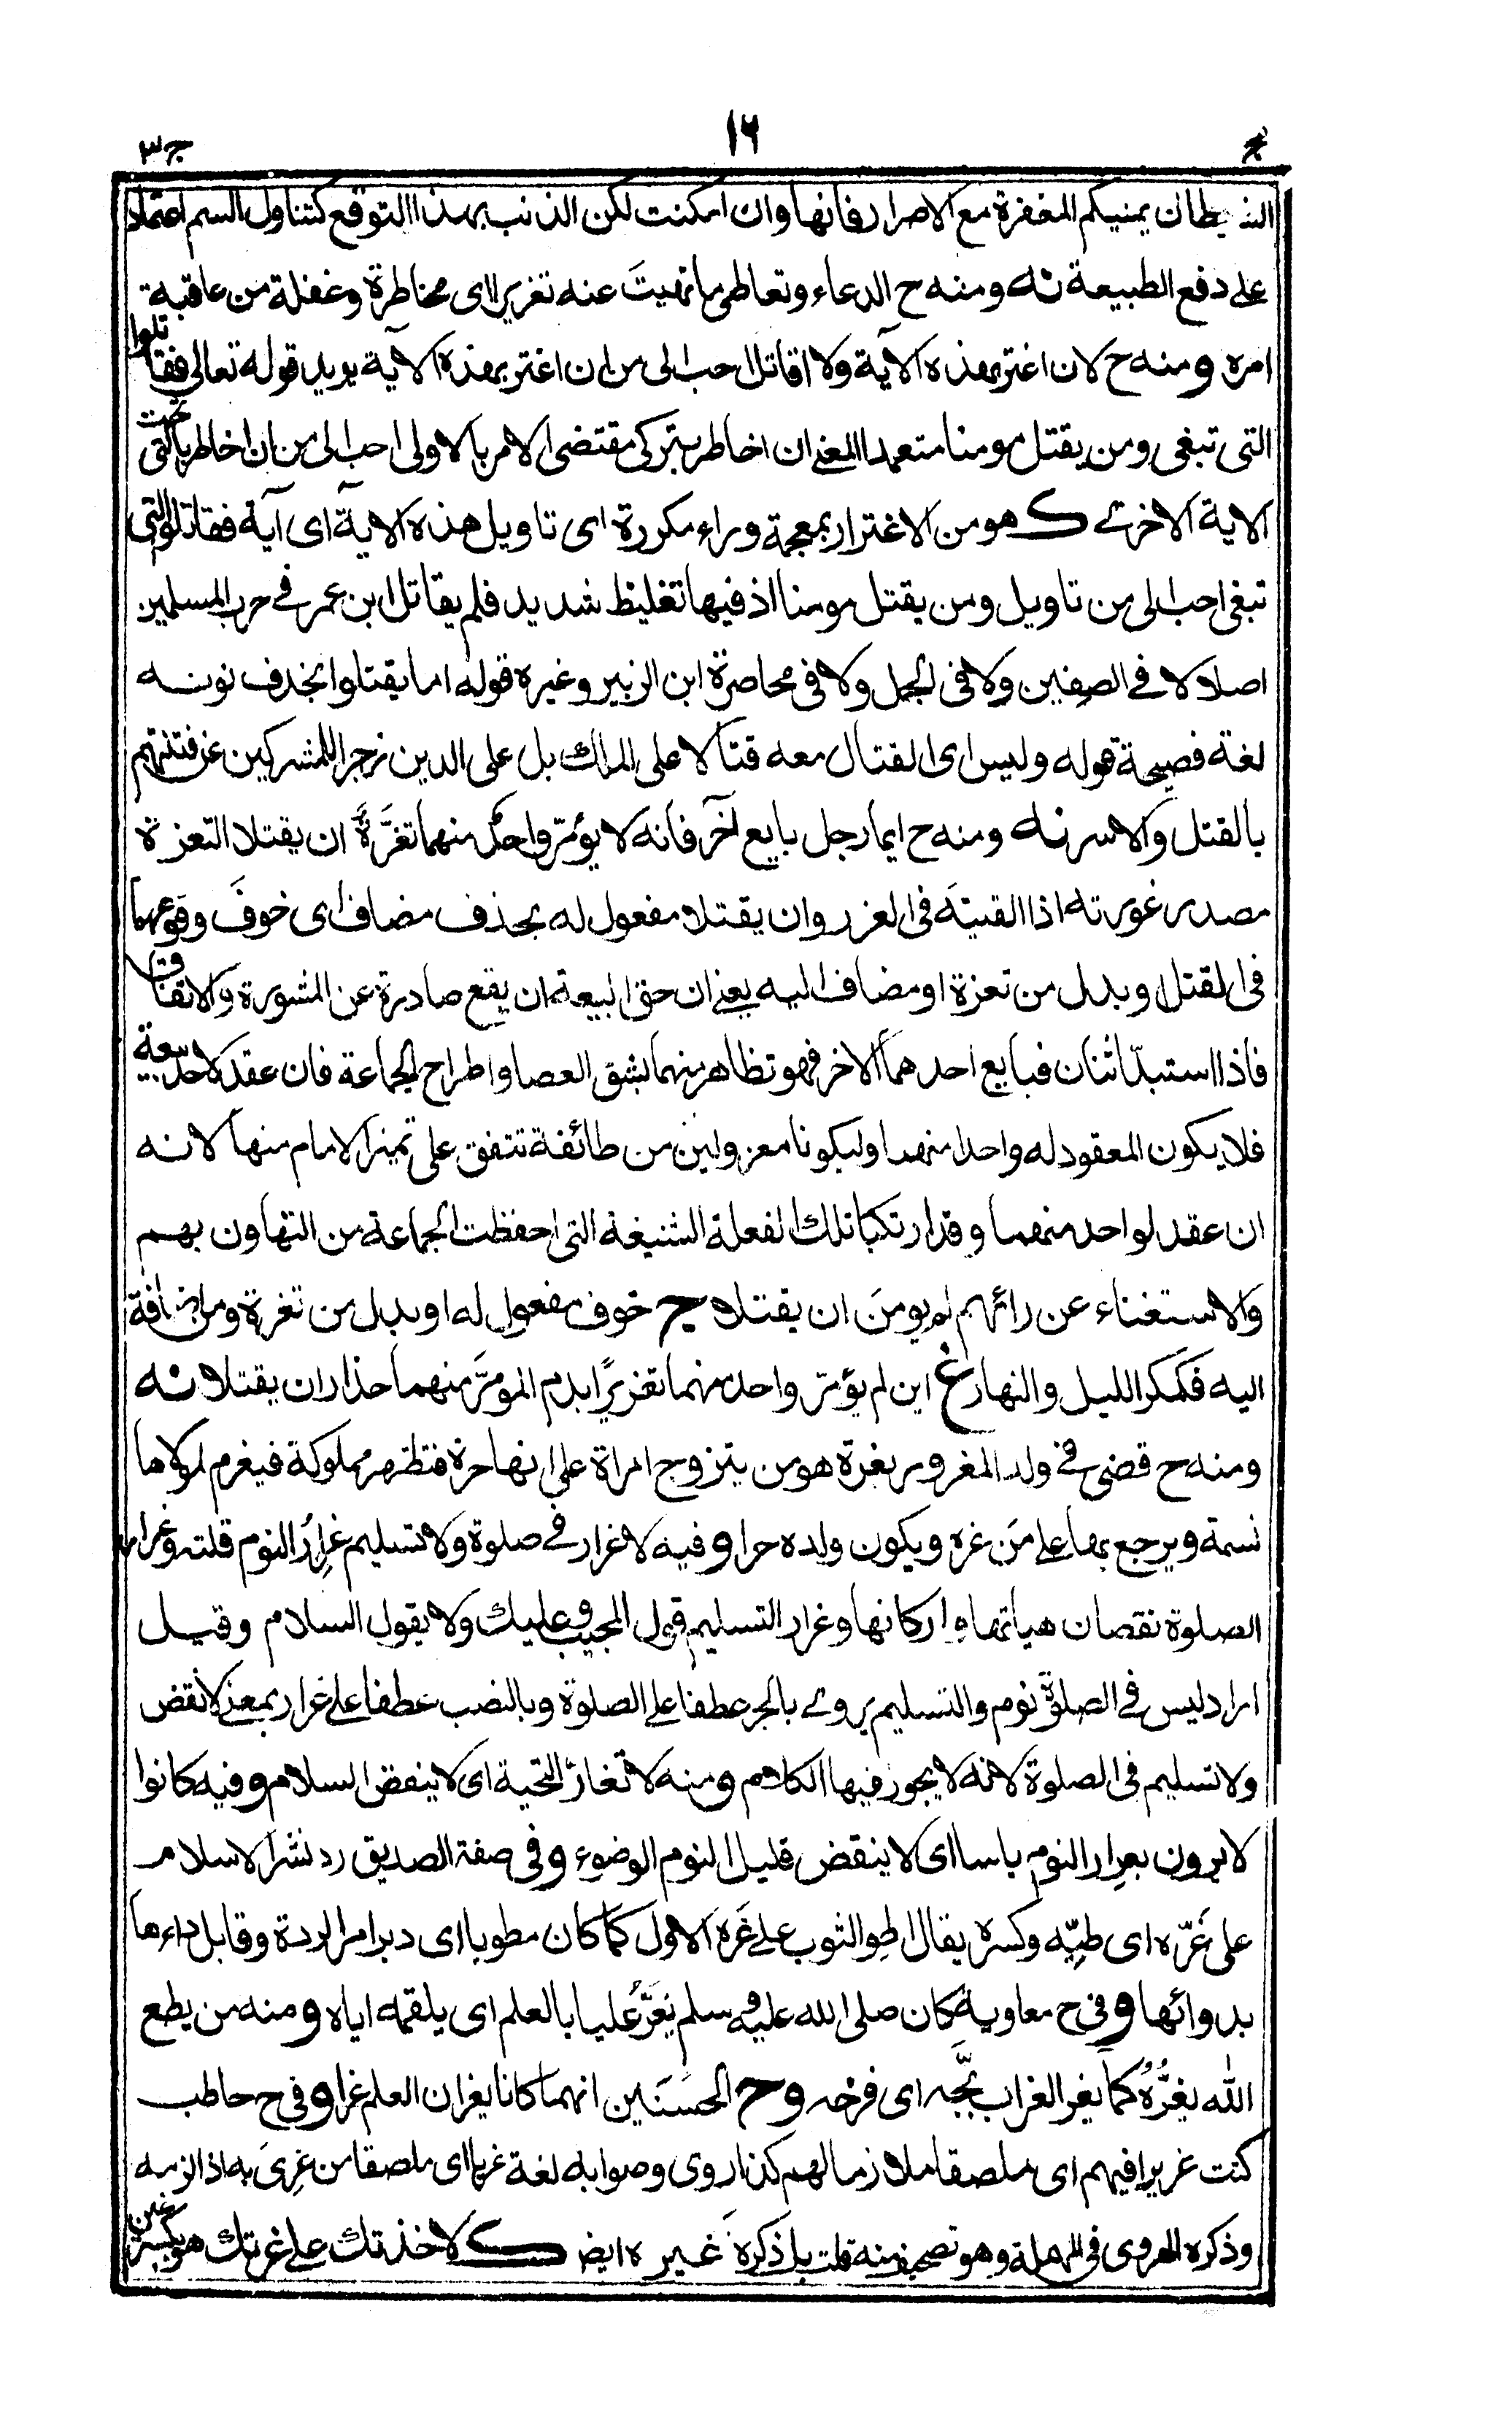 ج٣ ١٦ غر
الشيطان يمنيكم المغفرة مع الاصرار فانها وان امكنت لكن الذنب بهذا التوقع كتناول السم اعتمادا
على دفع الطبيعة نه ومنه ح الدعاء وتعاطى ما نهيتَ عنه تغريرا اى مخاطرة وغفلة من عاقبة
امره ومنه ح لان اغتر بهذه الآية ولا اقاتل احب الى من ان اغتر بهذه الآية يريد قوله تعالى فقاتلوا
التى تبغى ومن يقتل مومنا متعمدا المعنى ان اخاطر بتركى مقتضى الامر بالاولى احب الى من ان اخاطر بالتى تحت
الاية الاخرى ك هو من الاغترار بمعجمة وراء مكررة اى تاويل هذه الآية اى آية فقاتلوا التى
تبغى احب الى من تاويل ومن يقتل مومنا اذ فيها تغليظ شديد فلم يقاتل ابن عمر فى حرب المسلمين
اصلا لا فى الصفين ولا فى الجمل ولا فى محاصرة ابن الزبير وغيره قوله اما يقتلوا بحذف نونه
لغة فصيحة قوله وليس اى القتال معه قتالا على الملك بل على الدين زجرا للمشركين عن فتنتهم
بالقتل والاسر نه ومنه ح ايما رجل بايع آخر فانه لا يؤمّر واحد منهما تغَرَّةً ان يقتلا التغرة
مصدر غررته اذا القيتَه فى الغرر وان يقتلا مفعول له بحذف مضاف اى خوفَ وقوعهما
فى القتل وبدل من تغرة او مضاف اليه يعنى ان حق البيعة ان يقع صادرة عن المشورة والاتفاق
فاذا استبدّ اثنان فبايع احدهما الاخر فهو تظاهر منهما بشق العصا واطراح الجماعة فان عقد لاحد بيعة
فلا يكون المعقود له واحدا منهما وليكونا معزولين من طائفة تتفق على تميز الامام منها لانه
ان عقد لواحد منهما وقد ارتكبا تلك الفعلة الشنيعة التى احفظت الجماعة من التهاون بهم
والاستغناء عن رائهم لم يومنَ ان يقتلا ج خوف مفعول له او بدل من تغرة ومن اضافة
اليه فكمكر الليل والنهار غ اين لم يؤمّر واحد منهما تغريرًا بدم المومَّر منهما حذار ان يقتلا نه
ومنه ح قضى فى ولد المغرور بغرة هو من يتزوج امراة على انها حرة فتظهر مملوكة فيغرم لمولاها
نسمة ويرجع بها على مَن غره ويكون ولده حرا وفيه لا غرار فى صلوة ولا تسليم غِرارُ النوم قلته وغرار
الصلوة نقصان هيأتها واركانها وغرار التسليم قول المجيب وعليك ولا يقول السلام وقيل
اراد ليس فى الصلوة نوم والتسليم يروى بالجر عطفا على الصلوة وبالنصب عطفا على غرار بمعنى لا نقض
ولا تسليم فى الصلوة لانه لا يجوز فيها الكلام ومنه لا تغارّ التحية اى لا ينقض السلام وفيه كانوا
لا يرون بغرار النوم باسا اى لا ينقض قليل النوم الوضوء وفى صفة الصديق رد نشر الاسلام
على غَرّه اى طيّه وكسره يقال اطو الثوب على غَرّه الاول كما كان مطويا اى دبر امر الردة وقابل داءها
بدوائها وفى ح معاوية كان صلى الله عليه وسلم يَغرُّ عليا بالعلم اى يلقمه اياه ومنه من يطع
الله يغُرُّهُ كما يغر الغراب بُجَّه اى فرخه وح الحسنَين انهما كانا يغران العلم غرا وفى ح حاطب
كنت غريرا فيهم اى ملصقا ملازما لهم كذا روى وصوابه لغة غريا اى ملصقا من غِرىَ به اذا لزمه
وذكره الهروى فى المهملة وهو تصحيف منه قلت بل ذكره غيره ايض ك لاخذتك على غرتك هو بكسر غين